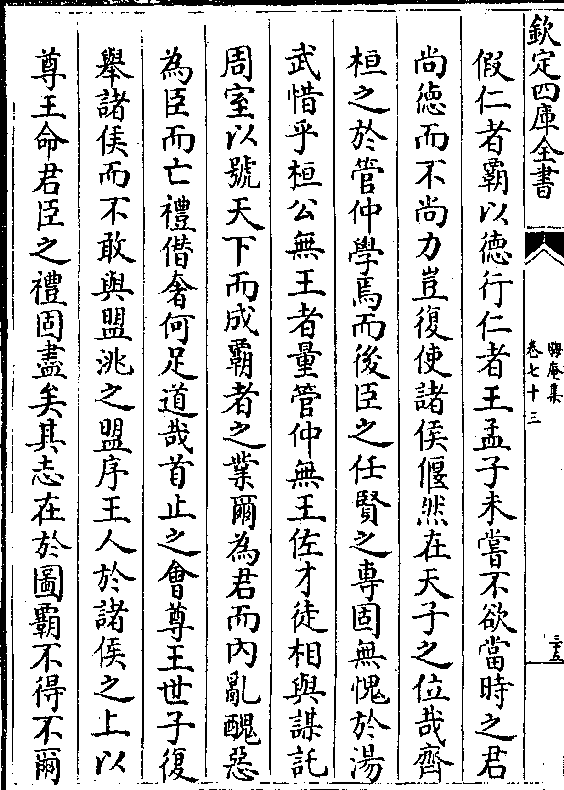 欽定四庫全書
晦庵集
卷七十三
三五
假仁者霸以德行仁者王孟子未嘗不欲當時之君
尚德而不尚力豈復使諸侯偃然在天子之位哉齊
桓之於管仲學焉而後臣之任賢之專固無愧於湯
武惜乎桓公無王者量管仲無王佐才徒相與謀託
周室以號天下而成霸者之業爾為君而內亂醜惡
為臣而亡禮僣奢何足道哉首止之會尊王世子復
舉諸侯而不敢與盟洮之盟序王人於諸侯之上以
尊王命君臣之禮固盡矣其志在於圖霸不得不爾